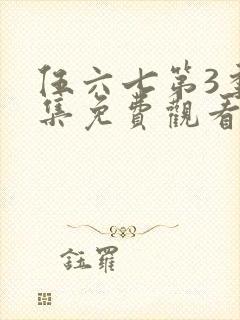 伍六七第3季
集免費觀看
鈺羅